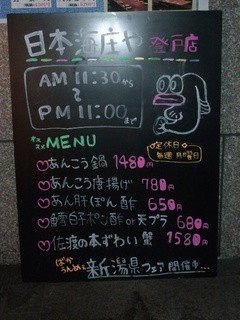 日本海庄や 登戸店
AM 11:30から
〜
PM 11:00まで
定休日
毎週 月曜日
オススメMENU
♡あんこう鍋 1480円
♡あんこう唐揚げ 780円
♡あん肝ぽん酢 650円
♡鱈白子ポン酢or天プラ 680円
♡佐渡の本ずわい蟹 1580円
新潟県フェア開催中...